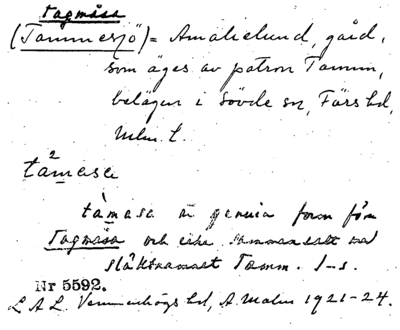 Tagmåsa
(Tammesjö) = Amalielund, gård,
som äges av patron Tamm,
belägen i Sövde sn, Färs hd,
Mlm. l.
tå²mase
tàmasa är genuin form för
Tagmåsa och icke sammansatt med
släktnamnet Tamm. I-s.
Nr 5592.
L A L. Vemmenhögs hd, A. Malm 1921-24.